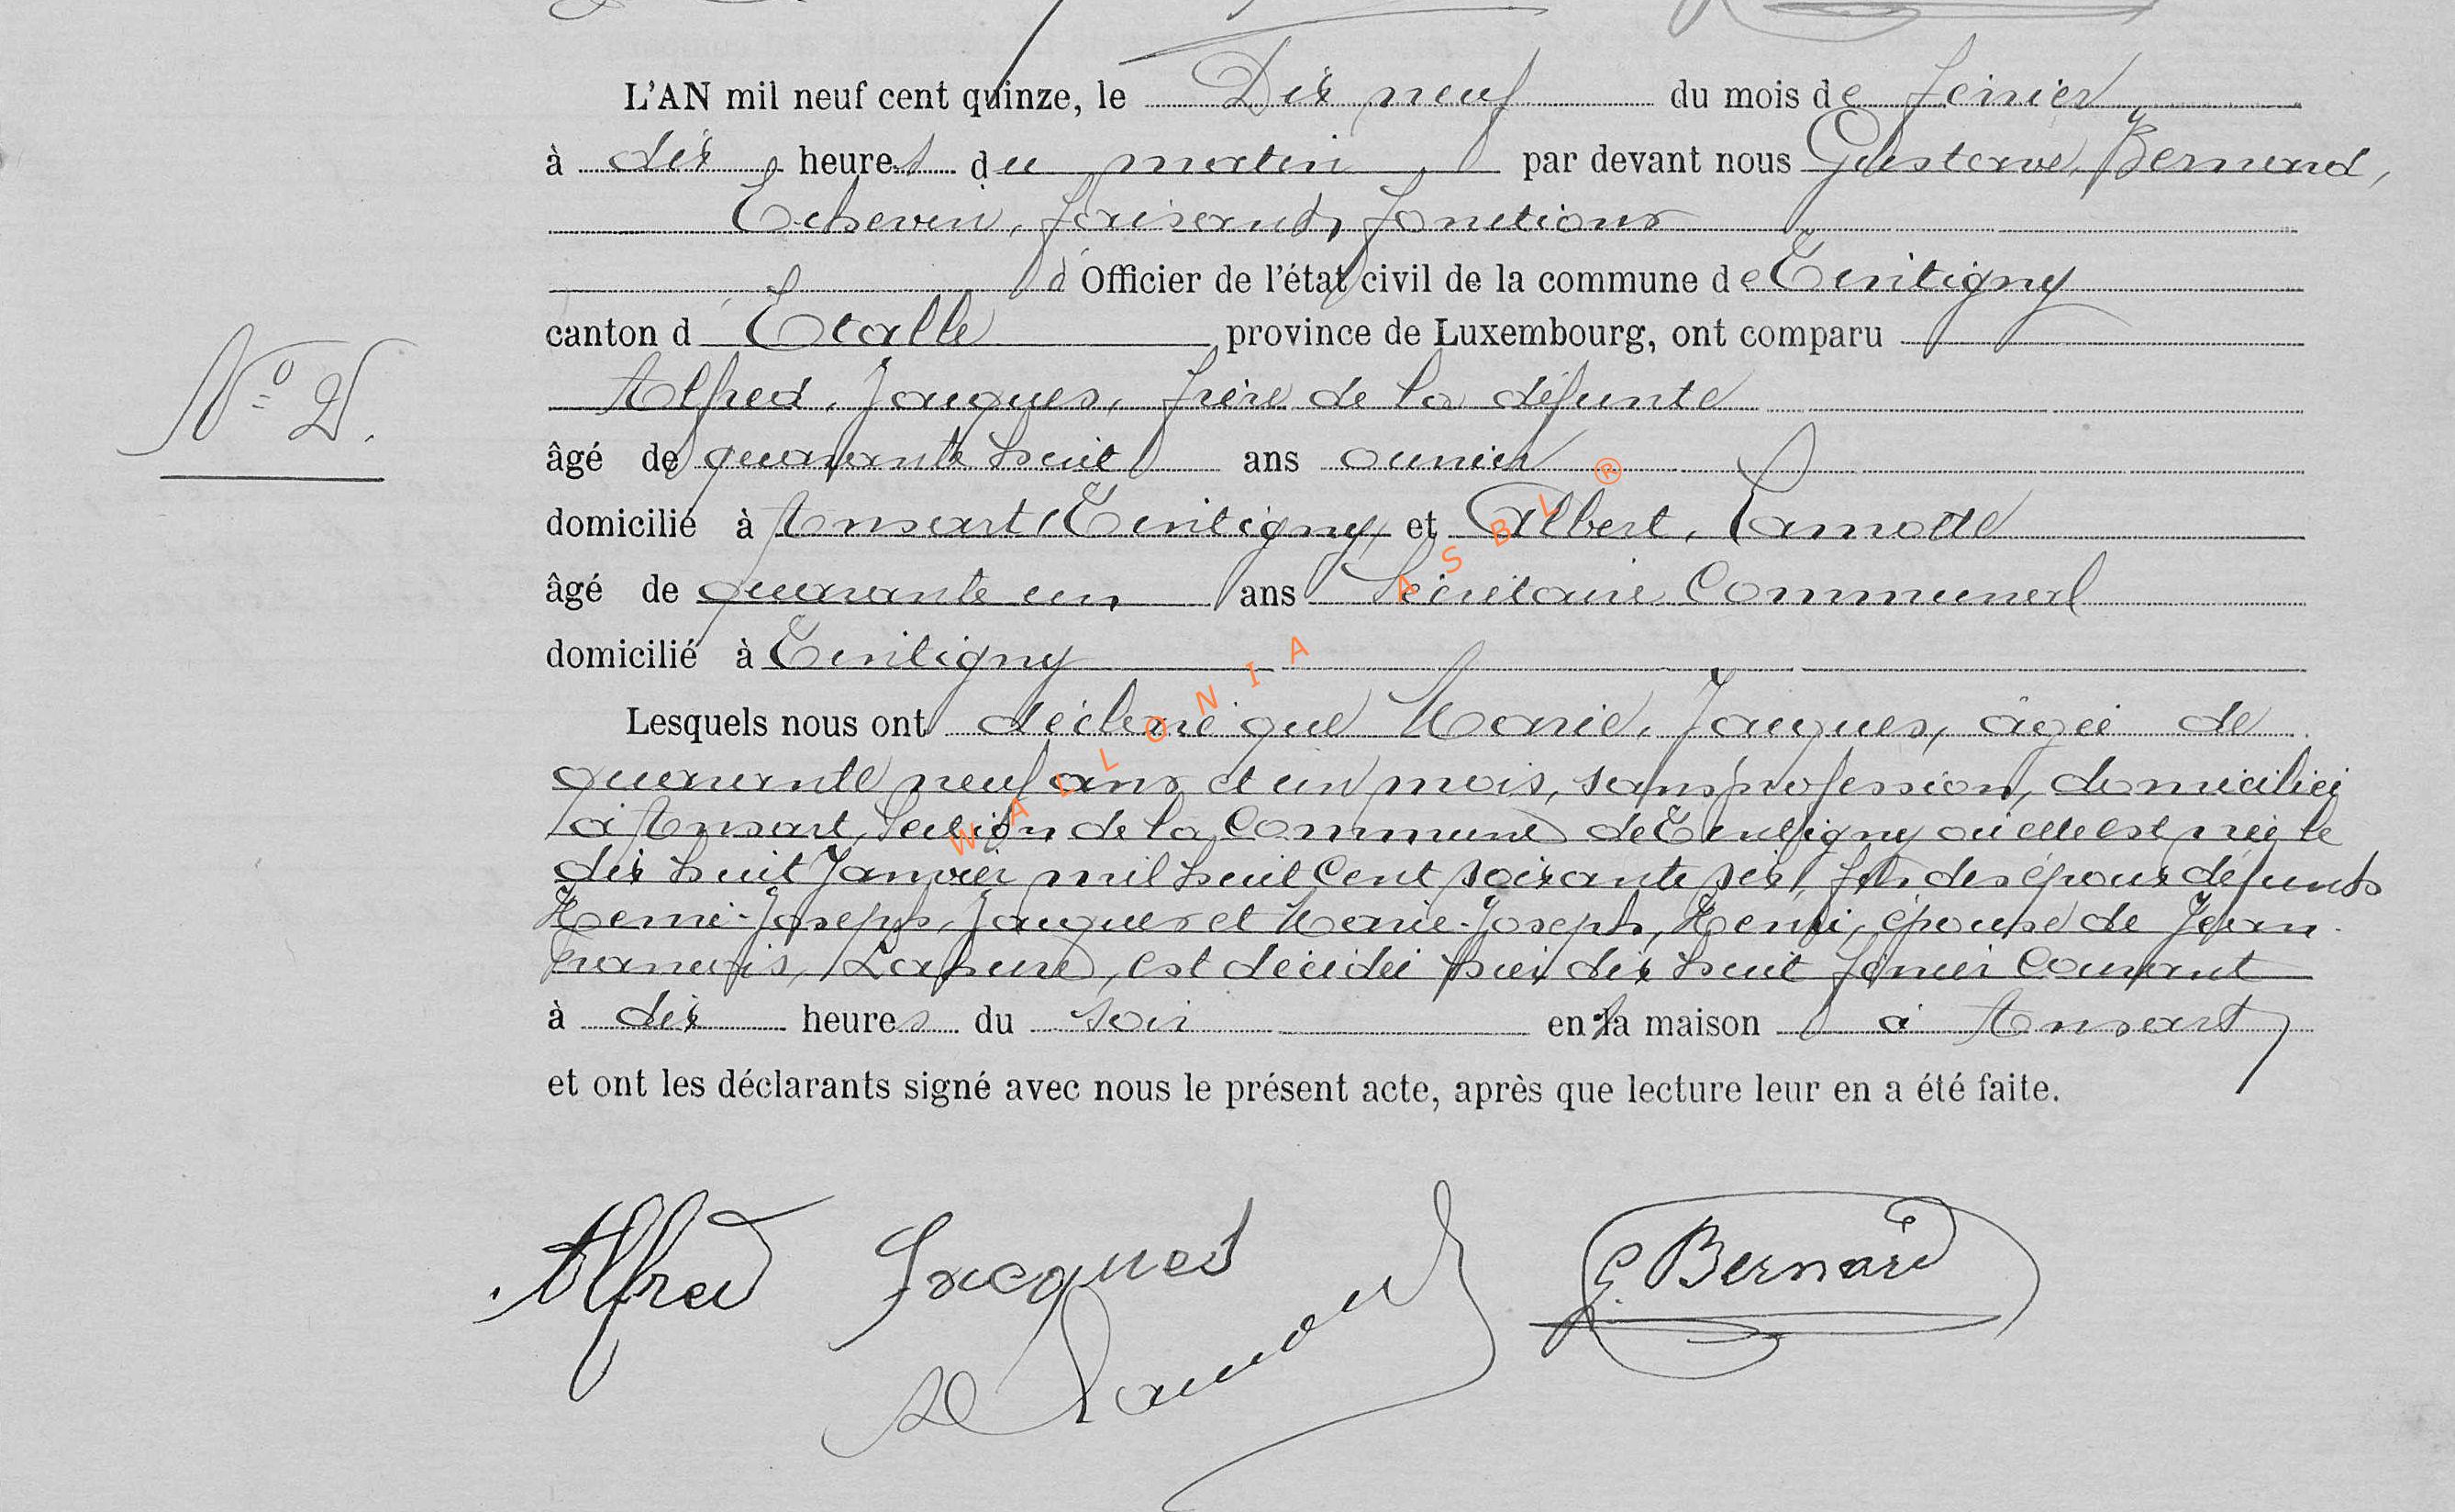 L'AN mil neuf cent quinze, le Dix neuf du mois de février
à dix heures du matin par devant nous Gustave, Bernard,
Echevin, faisant fonctions
d'Officier de l'état civil de la commune de Tintigny
canton d'Etalle province de Luxembourg, ont comparu
Alfred, Jacques, frère de la défunte
N° 2.
âgé de quarante huit ans ouvrier
domicilié à Ansart (Tintigny) et Albert, Lamotte
âgé de quarante un ans Sécrétaire Communal
domicilié à Tintigny
Lesquels nous ont déclaré que Marie, Jacques, âgée de
quarante neuf ans et un mois, sans profession, domiciliée
à Ansart, Section de la Commune de Tintigny où elle est née le
dix huit Janvier mil huit Cent soixante six, fille des époux défunts
Henri-Joseph, Jacques et Marie-Joseph, Henri, épouse de Jean
François, Lahure, est décédée hier dix huit février Courant
à dix heures du soir en sa maison à Ansart
et ont les déclarants signé avec nous le présent acte, après que lecture leur en a été faite.
Alfred Jacques
G. Bernard
A Lamotte
WALLONIA ASBL ®